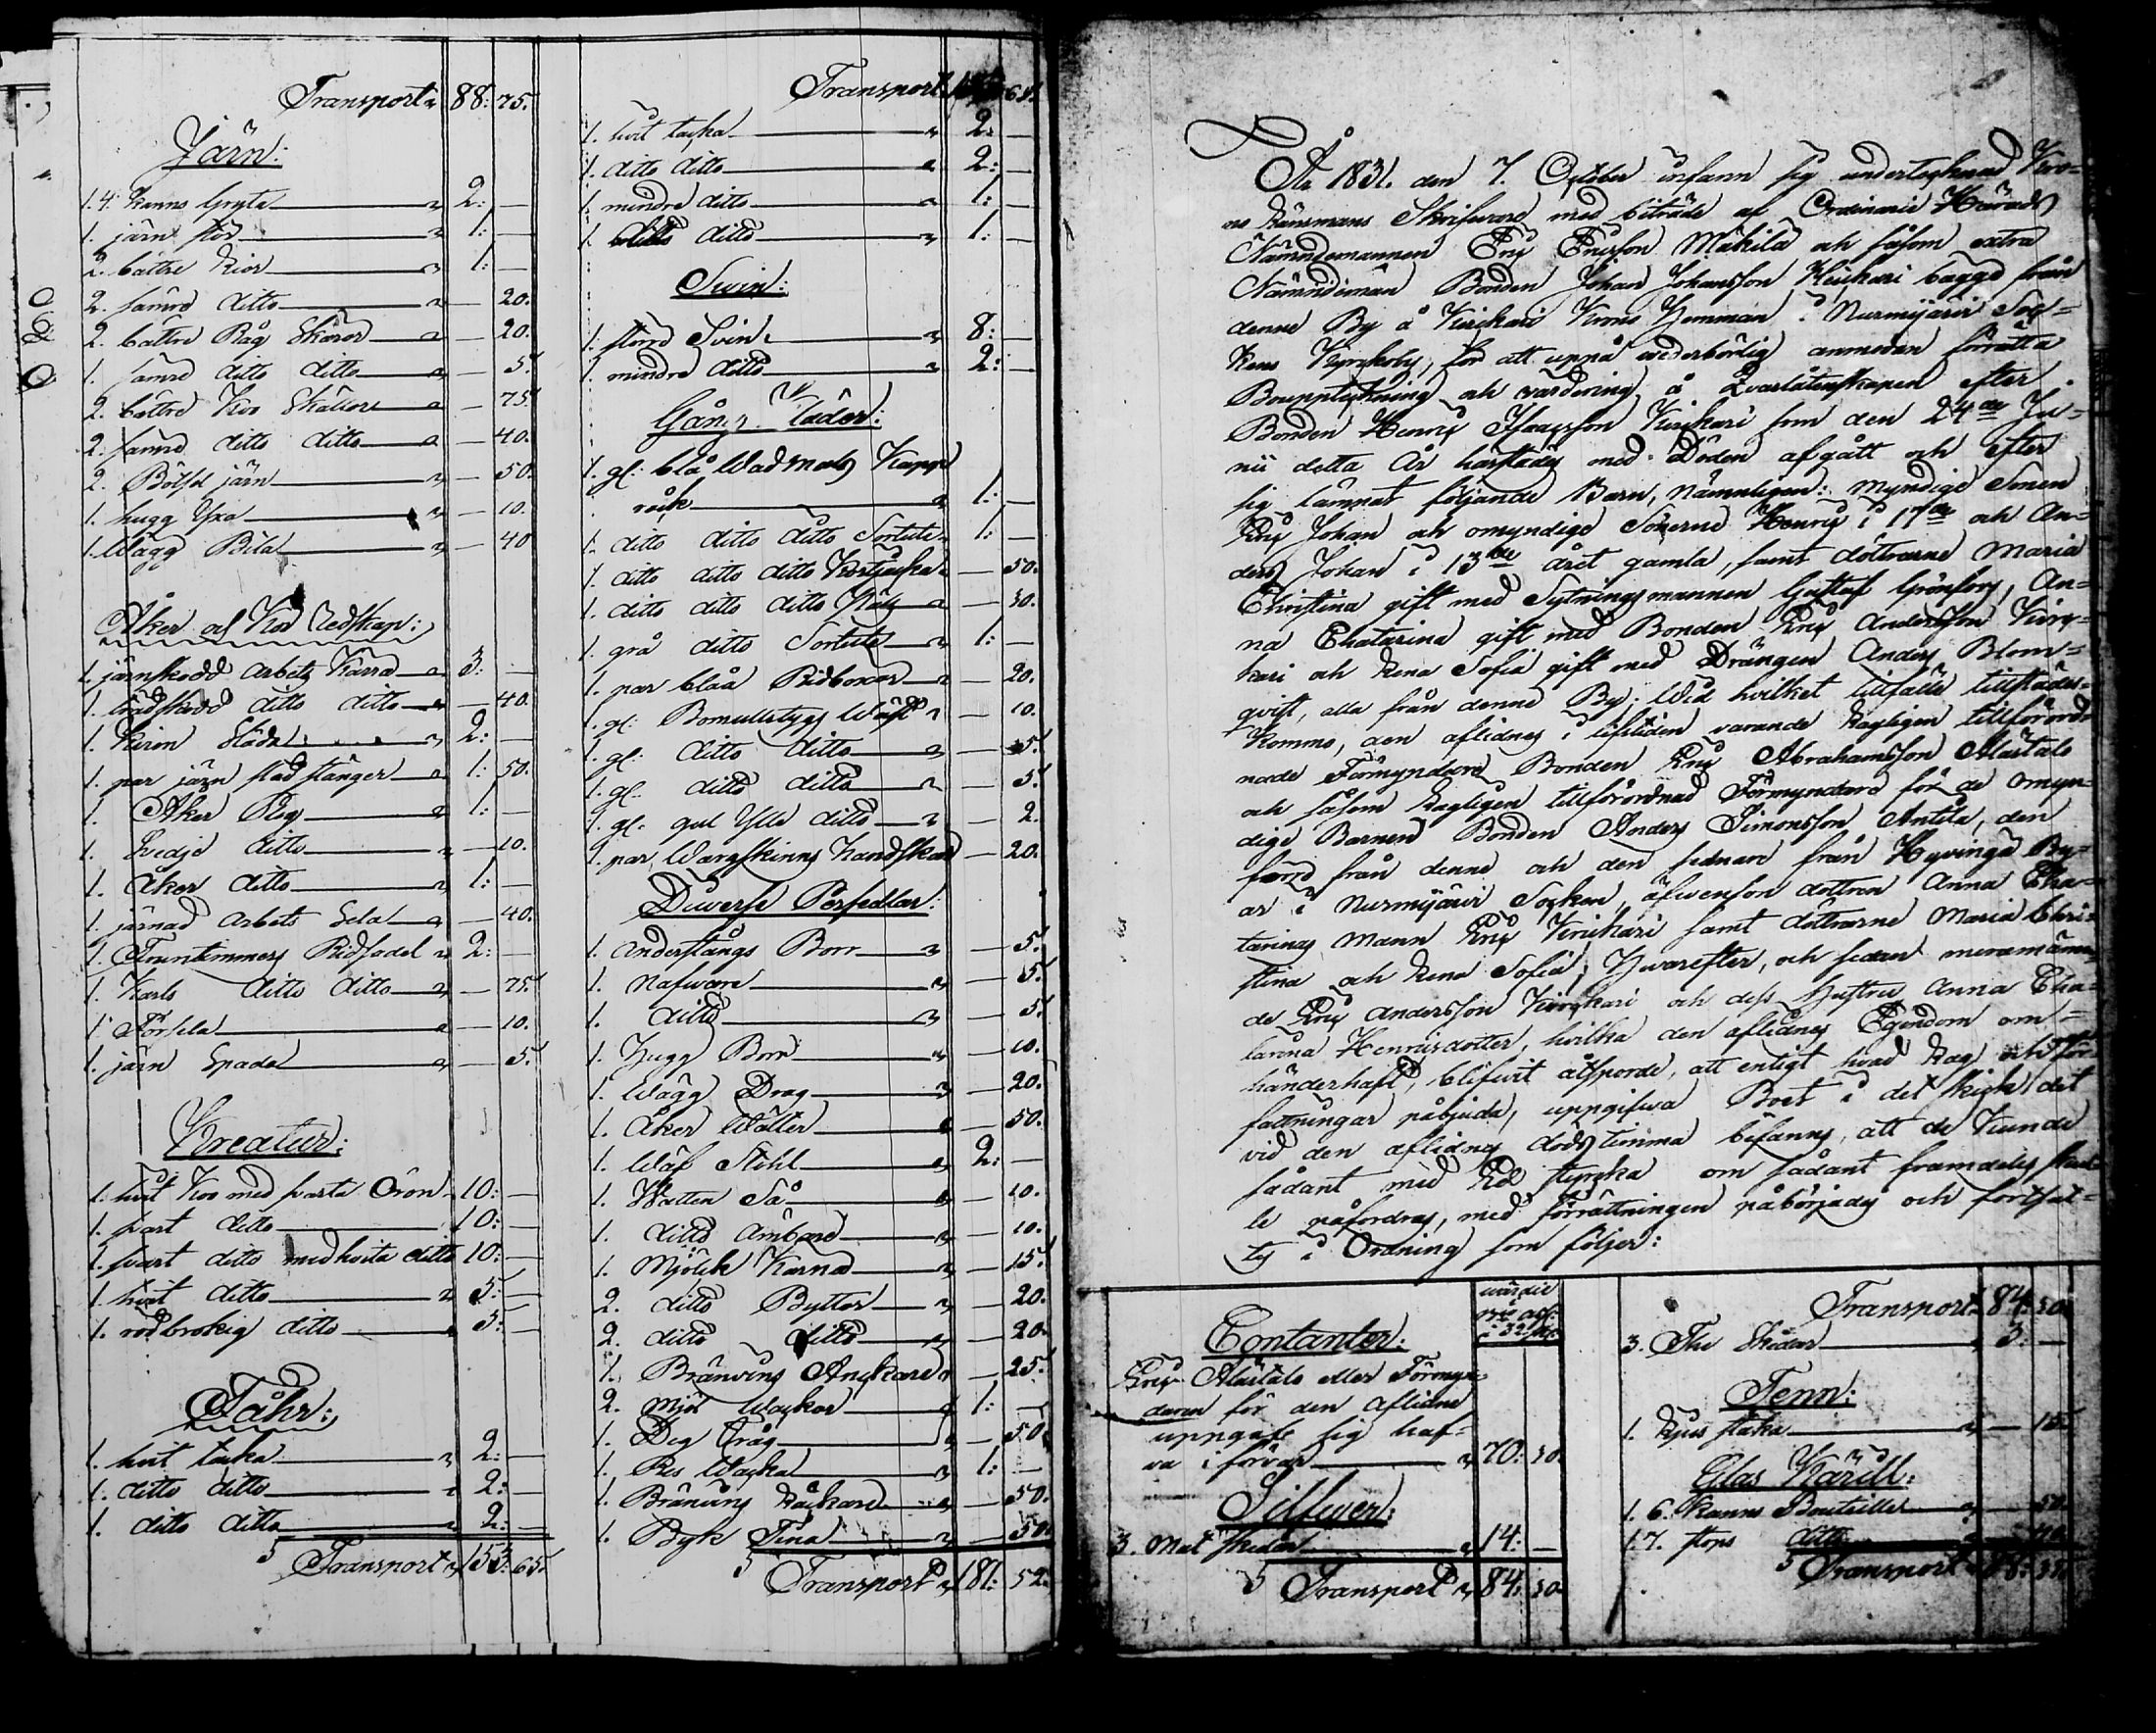 Transport 88: 75.
Järn:
1. 4. Kanns Gryta 2: —
1. järn 1: —
2. bättre Lior 1: —
2. sämre ditto — 20.
2. bättre Råg Skäror — 20.
1. sämre ditto ditto — 5.
2. bättre Koo Skällor — 75.
2. sämre ditto ditto — 40.
2. järn — 50.
1. hugg Yxa — 10.
1. Wägg Bila — 40
Åker och Redskap:
1. järnskodd arbets Kärra 3: —
1. trädskodd ditto ditto — 40.
1. Släda 2: —
1. par järn stänger 1: 50.
1. Åker Plog 1: —
1. Svedje ditto — 10.
1. Åker ditto 1: —
1. järnad arbets Sela — 40.
1. Fruntimmers Ridsadel 2: —
1. Karls ditto ditto — 75.
1. Försela — 10.
1. järn Spada — 5.
Kreatur:
1. hvit Koo med svarta Öron 10: —
1. svart ditto 10: —
1. svart ditto med hvita ditto 10: —
1. hvit ditto 5: —
1. rödbrokig ditto 5: —
Fåhr:
1. hvit tacka 2: —
1. ditto ditto 2: —
1. ditto ditto 2: —
Transport 153: 65.
Transport 65.
1. hvit tacka 2: —
1. ditto ditto 2: —
1. mindre ditto 1: —
1. ditto ditto 1: —
Svin:
1. större Svin 8: —
1. mindre ditto 2: —
Gång Kläder:
1. gl: blå Wadmals Kapp
råck 1: —
1. ditto ditto ditto Sortute 1: —
1. ditto ditto ditto — 50.
1. ditto ditto ditto — 30.
1. grå ditto Sortute 1: —
1. par blåa Ridboxor — 20.
1. gl: Bomullstygs Wäst — 10.
1. gl: ditto ditto — 5.
1. gl: ditto ditto — 5.
1. gl: gul Ylle ditto — 2.
1. par Wargskinns Handskar — 20.
Diverse Persedlar:
1. Anderstångs Borr — 5.
1. Nafware — 5.
1. ditto — 5.
1. Hugg Borr — 10.
1. Wågg Drog — 20.
1. Åker Wälter — 50.
1. Wäf Stohl 2: —
1. Watten Så — 10.
1. ditto Ämbare — 10.
1. Mjölk Kärna — 15.
2. ditto Byttor — 20.
2. ditto ditto — 20.
1. Bränvins Anckare — 25.
2. Mjöl Wackor 1: —
1. Deg Tråg — 50.
1. Res Wacka 1: —
1. Bränvins — 50.
1. Byk Tina — 50.
Transport 181: 52.
År 1831. den 7. October infann sig undertecknad Kro-
no Länsmans Skrifware med biträde af Ordinarie Härads
Nämndemannen Eric Ericsson Mäkilä och såsom extra
Nämndeman Bonden Johan Johansson Kirikari bägge från
denne By å Kirikari Krono Hemman i Nurmijärvi Soc-
kens Kyrckoby, för att uppå wederbörlig anmodan förrätta
Bouppteckning och värdering å Qvarlåtenskapen efter
Bonden Henric Isaacsson Kirikari som den 24de Ju-
nii detta År härstädes med Döden afgått och efter
sig lämnat följande Barn, nämnligen: myndige Sonen
Eric Johan och omyndige Sönerne Henric i 17de och An-
ders Johan i 13de året gamla, samt döttrarne Maria
Christina gift med Sytningsmannen Gustaf Grönfors, An-
na Chatarina gift med Bonden Eric Andersson Kiric-
kari och Lena Sofia gift med Drängen Anders Blom-
qvist, alla från denne By; Wid hvilket tillfälle tillstädes
kommo, den aflidnes i lifstiden varande Lagligen tillförord-
nade Förmyndare Bonden Eric Abrahamsson Alästalo
och såsom Lagligen tillförordnad Förmyndare för de omyn-
dige Barnen Bonden Anders Simonsson Anttila, den
förre från denne och den sednare från Hyvinge By-
ar i Nurmijärvi Socken, äfvensom dottren Anna Cha-
tarinas Mann Eric Kirickari samt döttrarne Maria Chri-
stina och Lena Sofia; Hwarefter, och sedan meranämn-
de Eric Andersson Kirickari och dess Hustru Anna Cha-
tarina Henricsdotter, hvilka den aflidnes Egendom om-
händerhaft, blifwit åtsporde, att enligt hwad Lag och för-
fattningar påbjuda, uppgifwa Boet i det skick det
vid den aflidnes dödstimma befanns, att de kunde
sådant med Ed styrcka om sådant framdeles skul-
le påfordras, med förrättningen påbörjades och fortsat-
tes i Ordning som följer:
Contanter:
Eric Alästalo eller Förmyn-
daren för den aflidne
uppgaf sig haf-
va i förvar 70: 50.
Silfwer:
3. Mat Skedar 14: —
Transport 84: 50.
Transport 84: 50.
3. The Skedar 3: —
Tenn:
1. Ljus staka — 15.
Glas Kärill:
1. 6. Kanns Bouteille
1. 7. stops ditto
Transport 88: